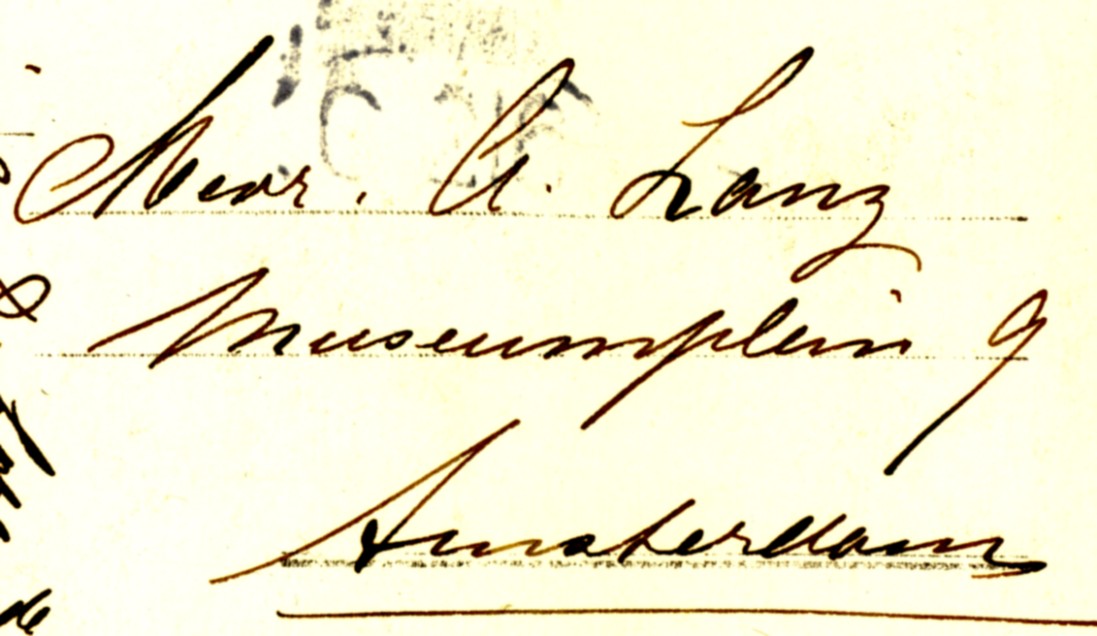 Mevr. A. Lanz
Museumplein 9
Amsterdam